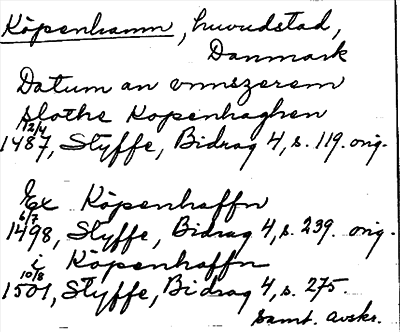 Köpenhamn, huvudstad,
Danmark
Datum an vnnszerem
slothe Kopenhaghen
12/4
1487, Styffe, Bidrag 4, s. 119. orig.
Ex Köpenhaffn
6/7
1498, Styffe, Bidrag 4, s. 239. orig.
i Köpenhaffn
10/8
1501, Styffe, Bidrag 4, s. 275.
samt. avskr.